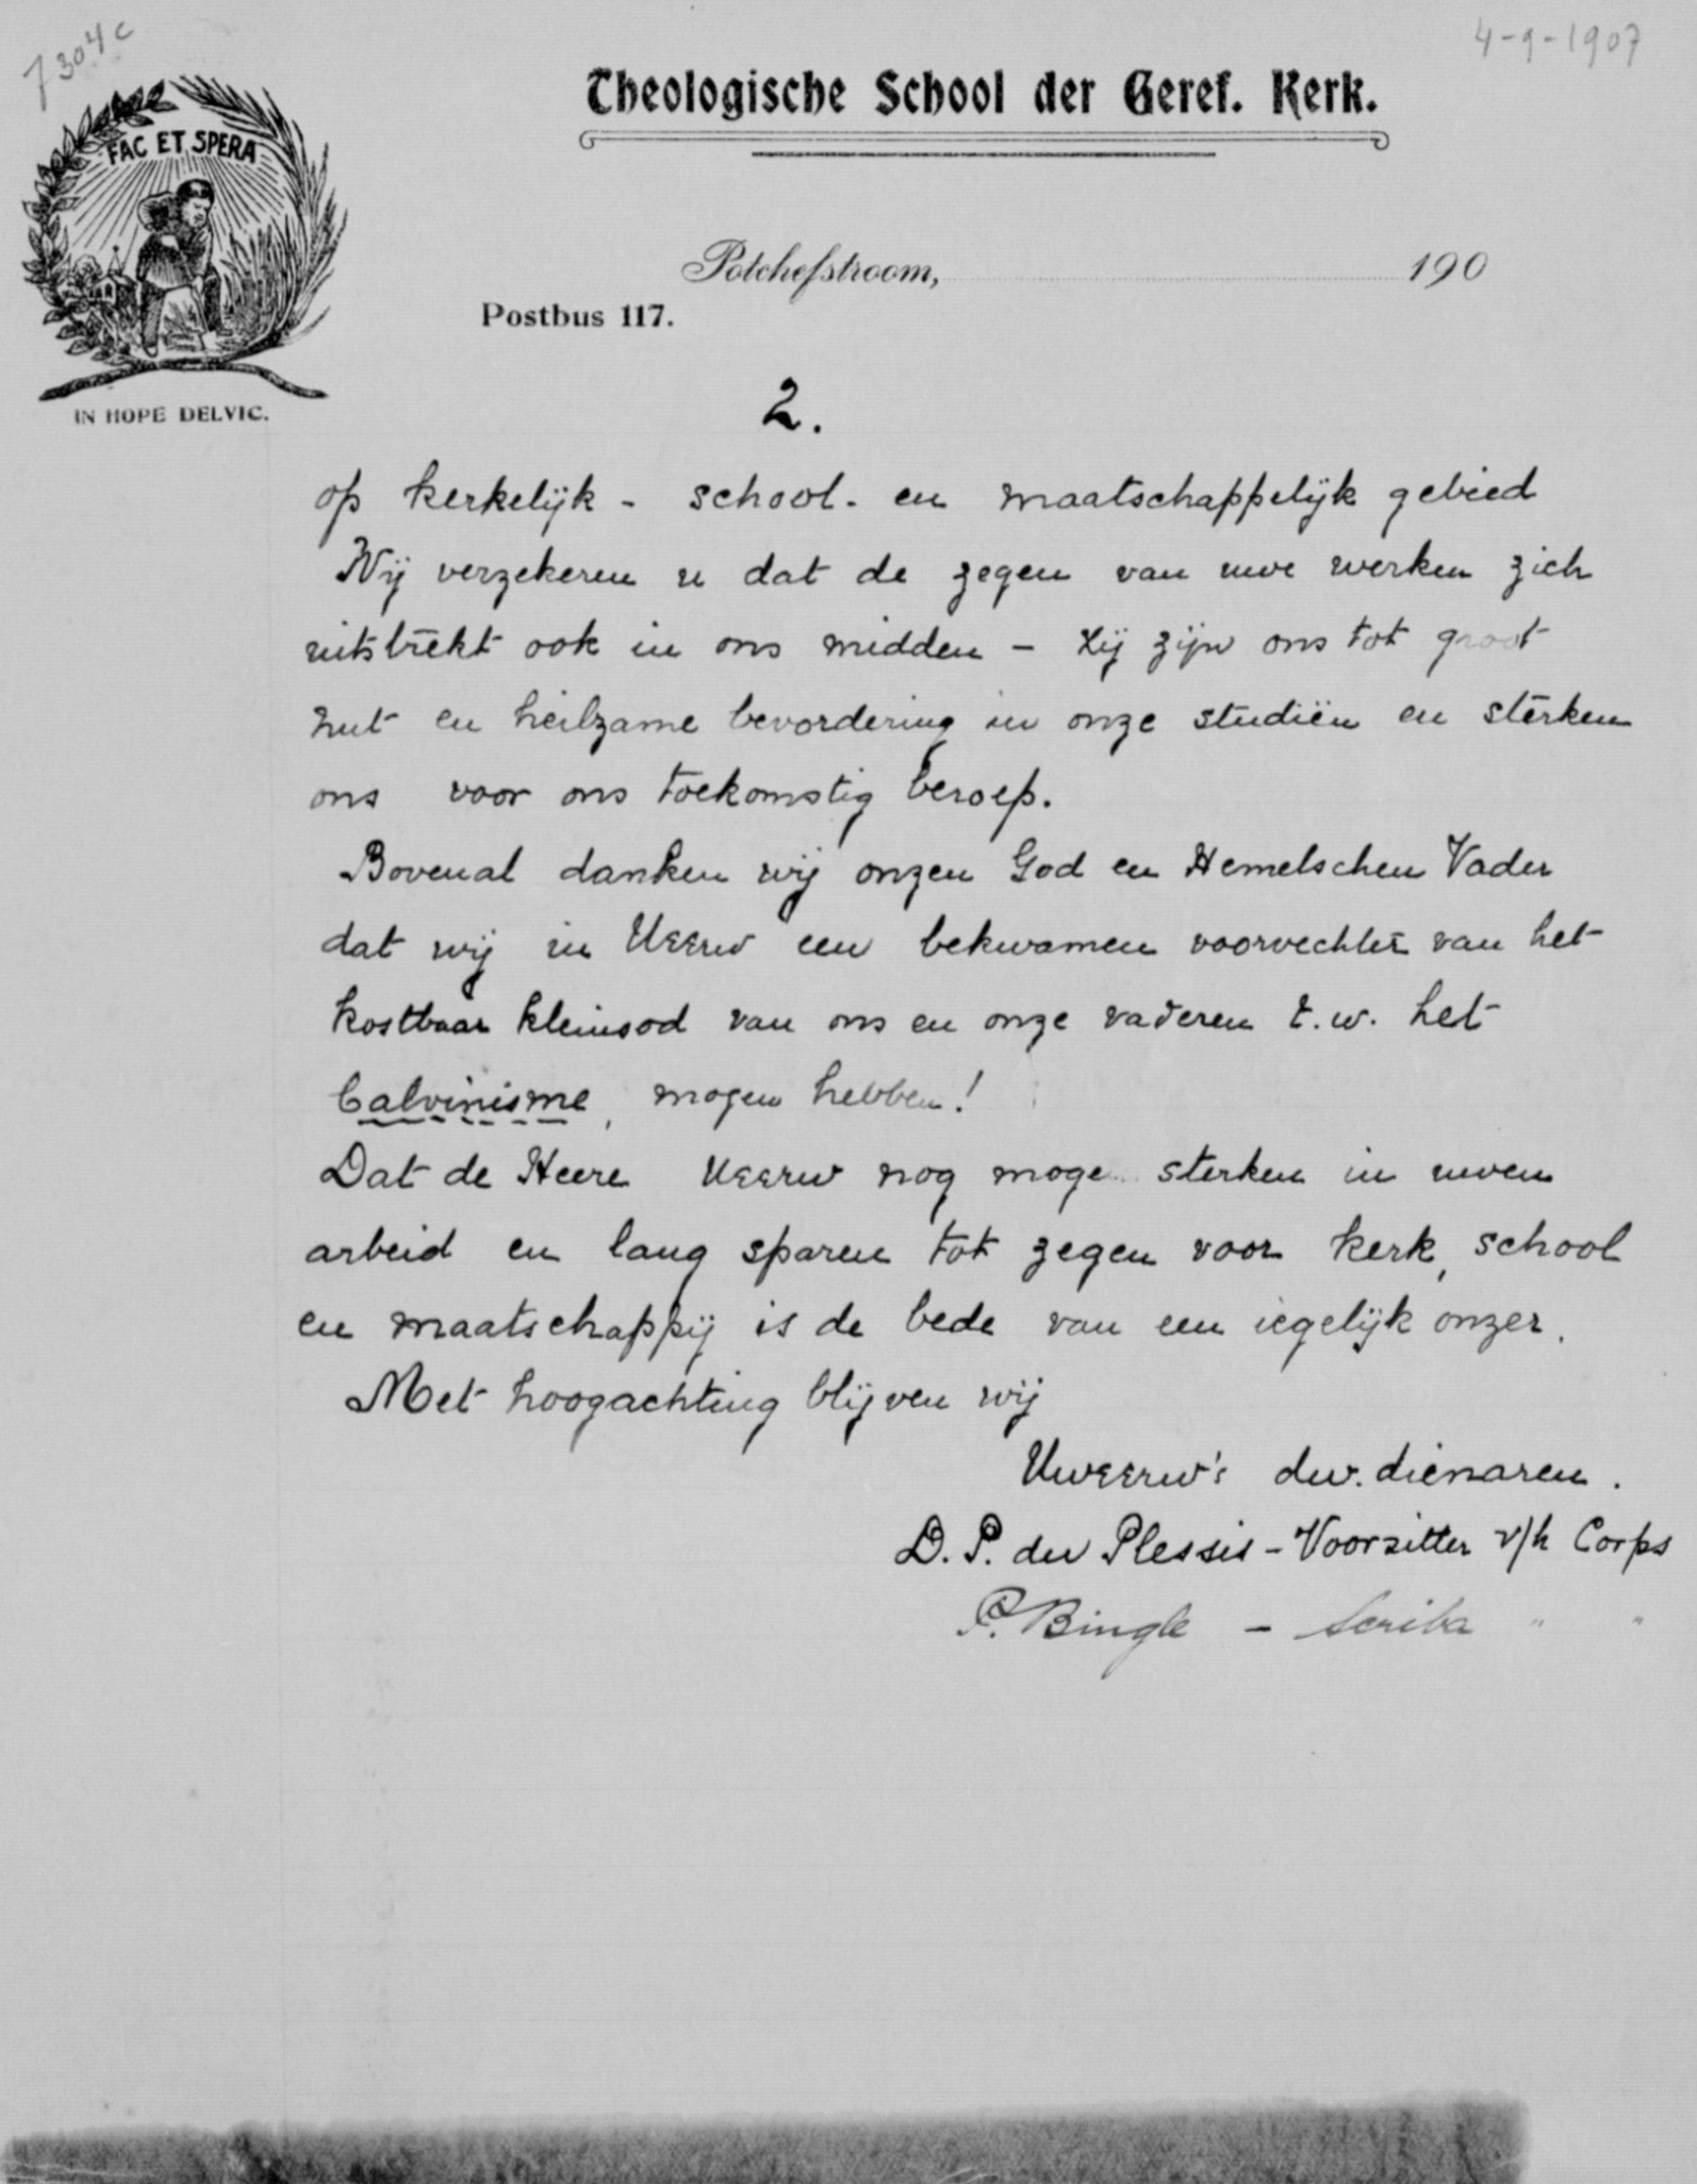 7304c
4-9-1907
Theologische School der Geref. Kerk.
FAC ET SPERA
IN HOPE DELVIC.
Potchefstroom, 190
Postbus 117.
2.
op kerkelijk - school- en maatschappelijk gebied
Wij verzekeren u dat de zegen van uwe werken zich
uitstrekt ook in ons midden - Zij zijn ons tot groot
nut en heilzame bevordering in onze studiën en sterken
ons voor ons toekomstig beroep.
Bovenal danken wij onzen God en Hemelschen Vader
dat wij in UEerw een bekwamen voorvechter van het
kostbaar kleinood van ons en onze vaderen t.w. het
Calvinisme, mogen hebben!
Dat de Heere UEerw nog moge sterken in uwen
arbeid en lang sparen tot zegen voor kerk, school
en maatschappij is de bede van een iegelijk onzer.
Met hoogachting blijven wij
UwEerw's dw. dienaren.
D. P. du Plessis - Voorzitter v/h Corps
P. Bingle - Scriba " "